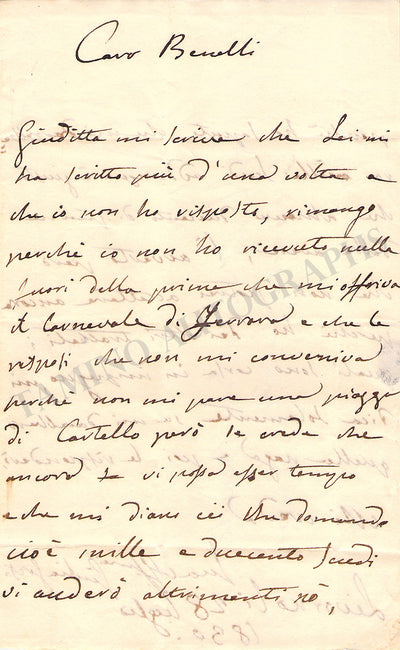 Caro Benelli
Giuditta mi scrive che Lei mi
ha scritto più d'una volta e
che io non ho risposto, rimango
perchè io non ho ricevuto nulla
fuori della prima che mi offriva
il Carnevale di Ferrara e che le
risposi che non mi conveniva
perchè non mi pare una piazza
di Cartello però se crede che
ancora vi possa esser tempo
e che mi diano ciò che domando
cioè mille e duecento scudi
vi anderò altrimenti nò,